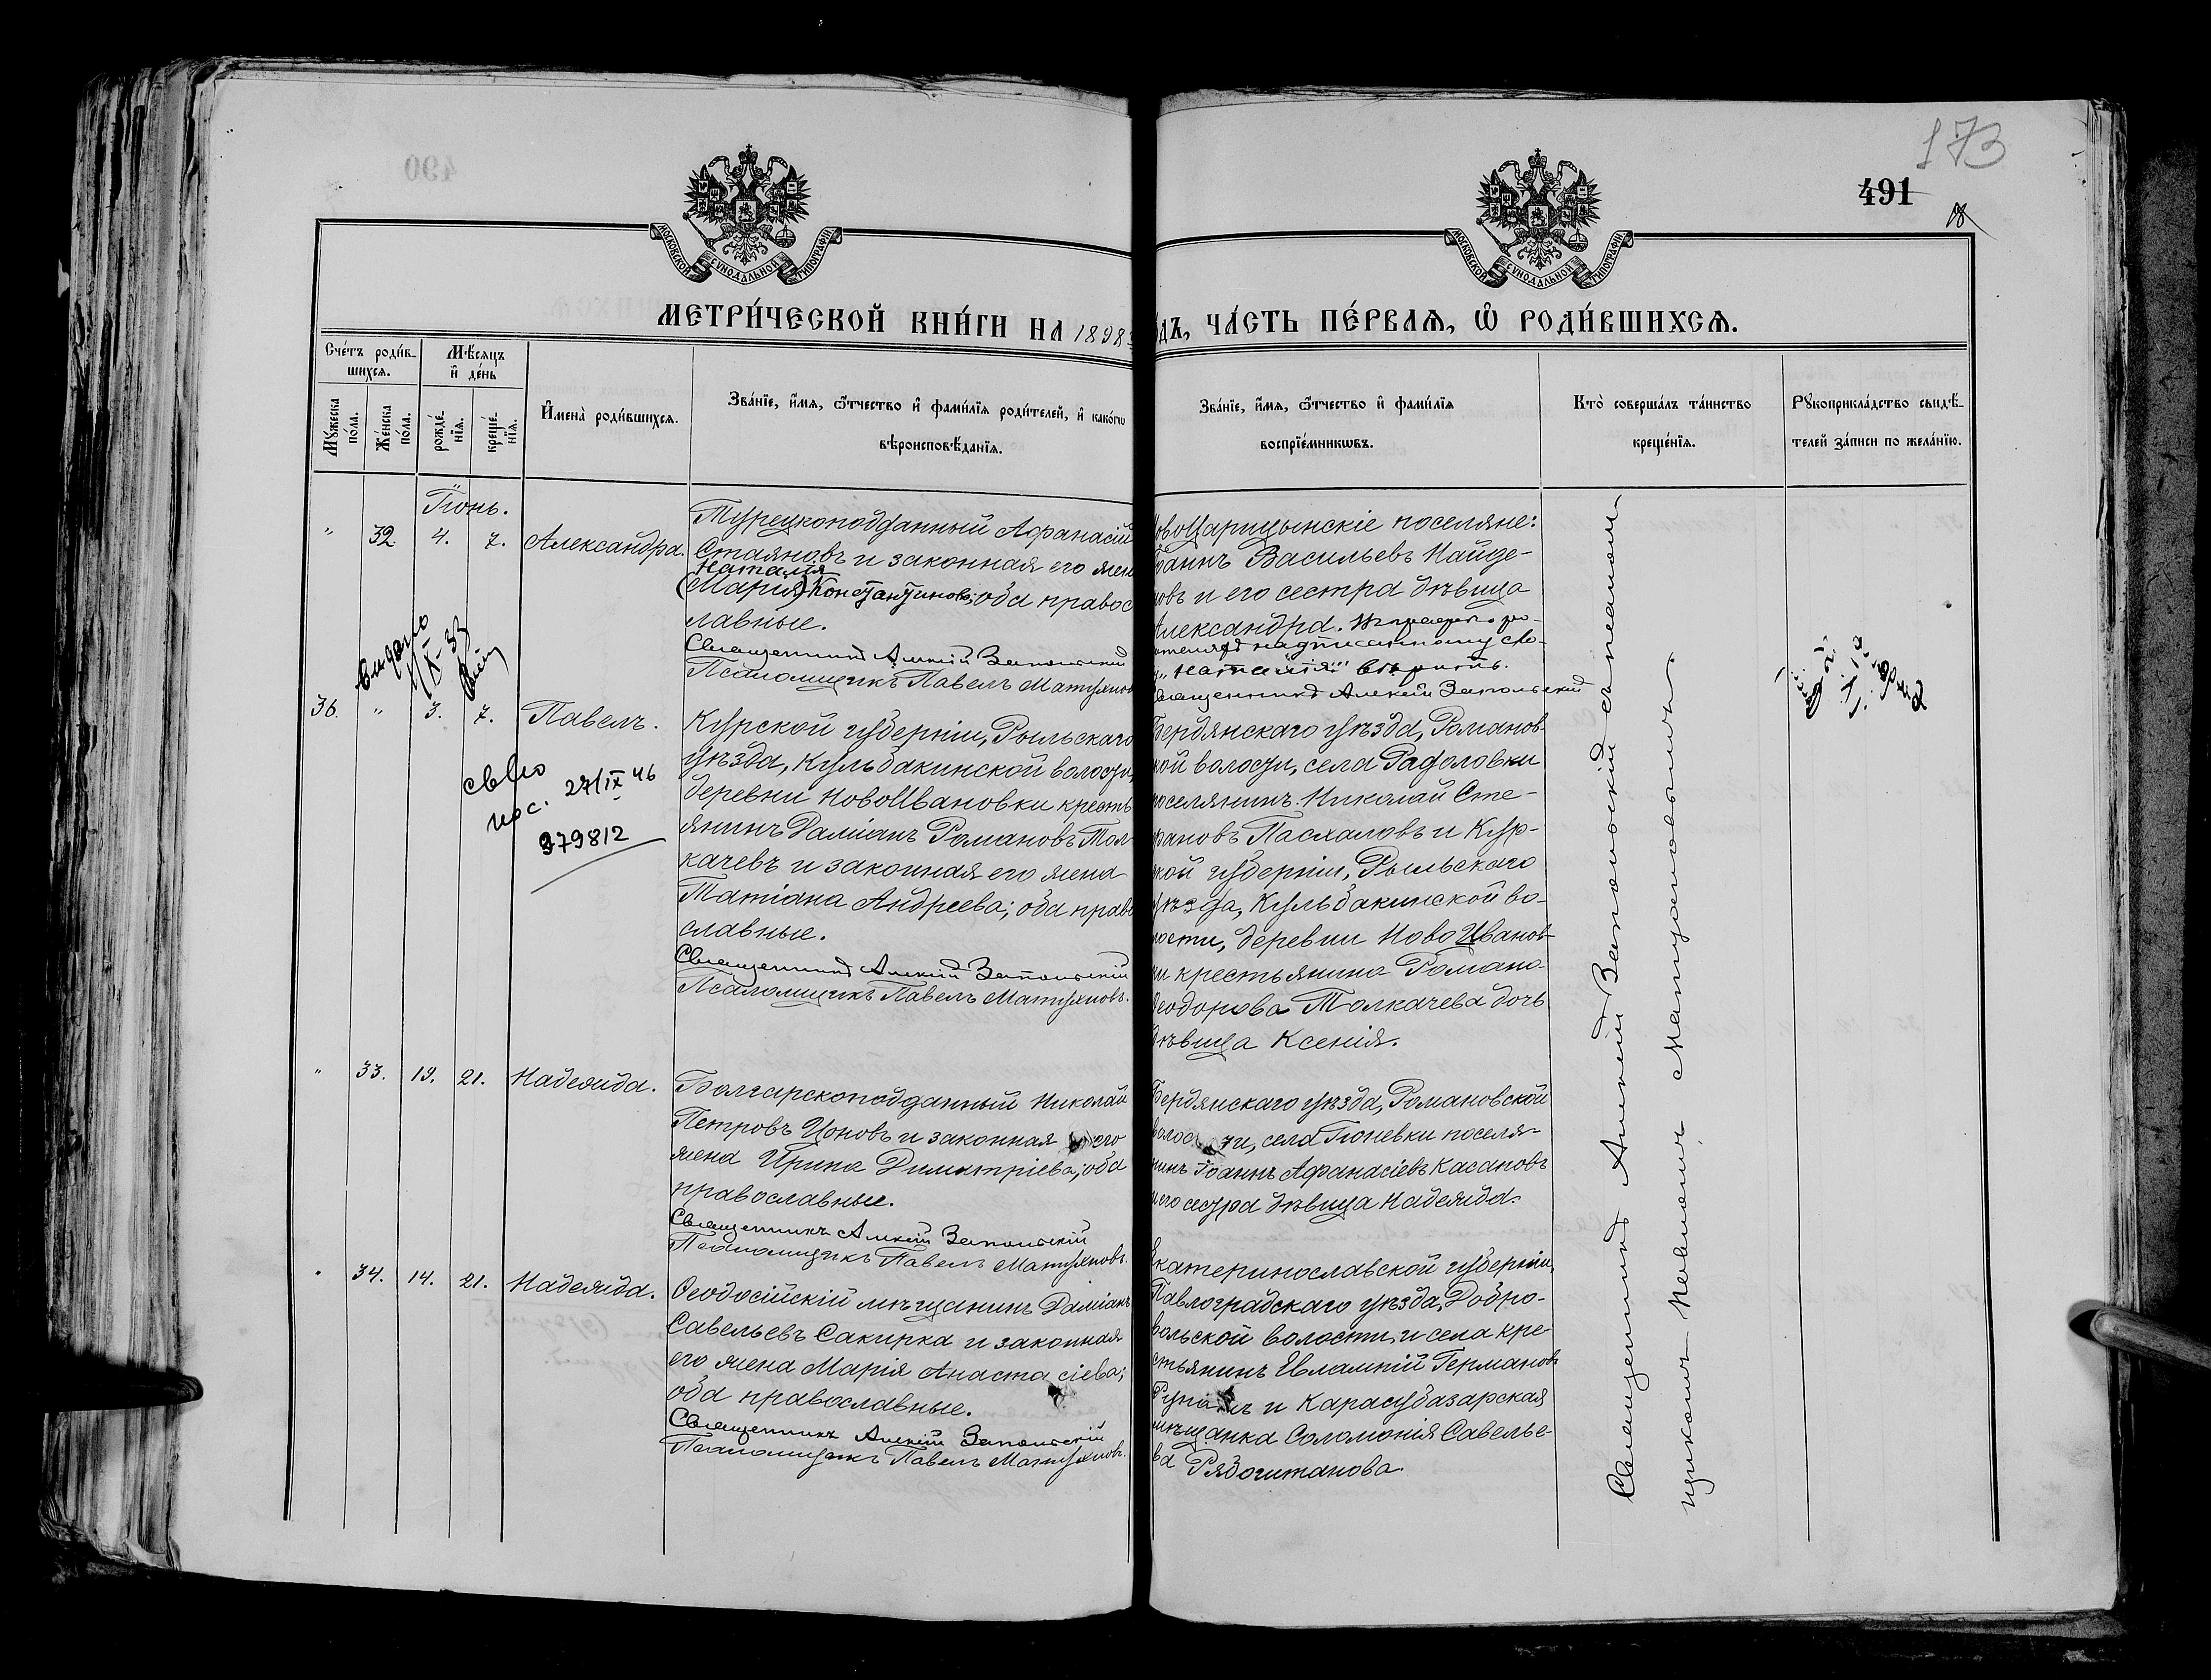 490
173
491
18
МОСКОВСКОЙ СѴНОДАЛЬНОЙ ТИПОГРАФІИ
МОСКОВСКОЙ СѴНОДАЛЬНОЙ ТИПОГРАФІИ
МЕТРИ́ЧЕСКОЙ КНИ́ГИ НА 1898
ДЪ, ЧА́СТЬ ПЕ́РВАѦ, Ѿ РОДИ́ВШИХСѦ.
Сче́тъ роди́в-
шихсѧ.
Мѣ́сѧцъ
и҆ де́нь
Мꙋ́жеска по́ла.
Же́нска по́ла.
рожде́-нїѧ.
креще́-нїѧ.
И҆мена̀ роди́вшихсѧ.
Зва́нїе, и҆́мѧ, ѻ҆́тчество и҆ фами́лїѧ роди́телей, и҆ како́гѡ
вѣроисповѣ́данїѧ.
Зва́нїе, и҆́мѧ, ѻ҆́тчество и҆ фами́лїѧ
воспрїе́мникѡвъ.
Кто̀ соверша́лъ та́инство
креще́нїѧ.
Рꙋкоприкла́дство свидѣ́-
телей за́писи по жела́нїю.
Іюнь.
" 32. 4. 7. Александра.
Турецкоподданный Афанасій
Стаяновъ и законная его жен
Наталія
(Марія) Константинова; оба правос
лавные.
Священникъ Алексій Запольскій
Псаломщикъ Павелъ Матухнов
овоЦарицынскіе поселяне:
Іоаннъ Васильевъ Найде-
новъ и его сестра дѣвица
Александра.
надписанному сло-
"Наталія" вѣрить.
Священникъ Алексій Запольскій
Выдано
36. " 3. 7. Павелъ.
27/IX 46
979812
Курской губерніи, Рыльскаго
уѣзда, Кульбакинской волости,
деревни НовоИвановки кресть
янинъ Даміанъ Романовъ Тол
качевъ и законная его жена
Татіана Андреева; оба право
славные.
Священникъ Алексій Запольскій
Псаломщикъ Павелъ Матухновъ.
Бердянскаго уѣзда, Романов-
кой волости, села Радоловки
поселянинъ Николай Сте-
фановъ Пасхаловъ и Кур-
ской губерніи, Рыльскаго
уѣзда, Кульбакинской во-
лости, деревни НовоИванов-
ки крестьянина Романа
Ѳеодорова Толкачева дочь
дѣвица Ксенія.
" 33. 19. 21. Надежда.
Болгарскоподданный Николай
Петровъ Цоновъ и законная его
жена Ирина Димитріева; оба
православные.
Священникъ Алексій Запольскій
Псаломщикъ Павелъ Матухновъ.
Бердянскаго уѣзда, Романовской
волости, села Гюневки поселя-
нинъ Іоаннъ Афанасіевъ Касаповъ
и его сестра дѣвица Надежда.
" 34. 14. 21. Надежда.
Ѳеодосійскій мѣщанинъ Даміанъ
Савельевъ Сакирка и законная
его жена Марія Анастасіева;
оба православные.
Священникъ Алексій Запольскій
Псаломщикъ Павелъ Матухновъ.
Екатеринославской губерніи,
Павлоградскаго уѣзда, Добро-
вольской волости и села кре-
стьянинъ Евлампій Германовъ
и Карасубазарская
мѣщанка Соломонія Савелье-
ва Рябоштанова.
Священникъ Алексій Запольскій съ псалом-
щикомъ Павломъ Матухновымъ.